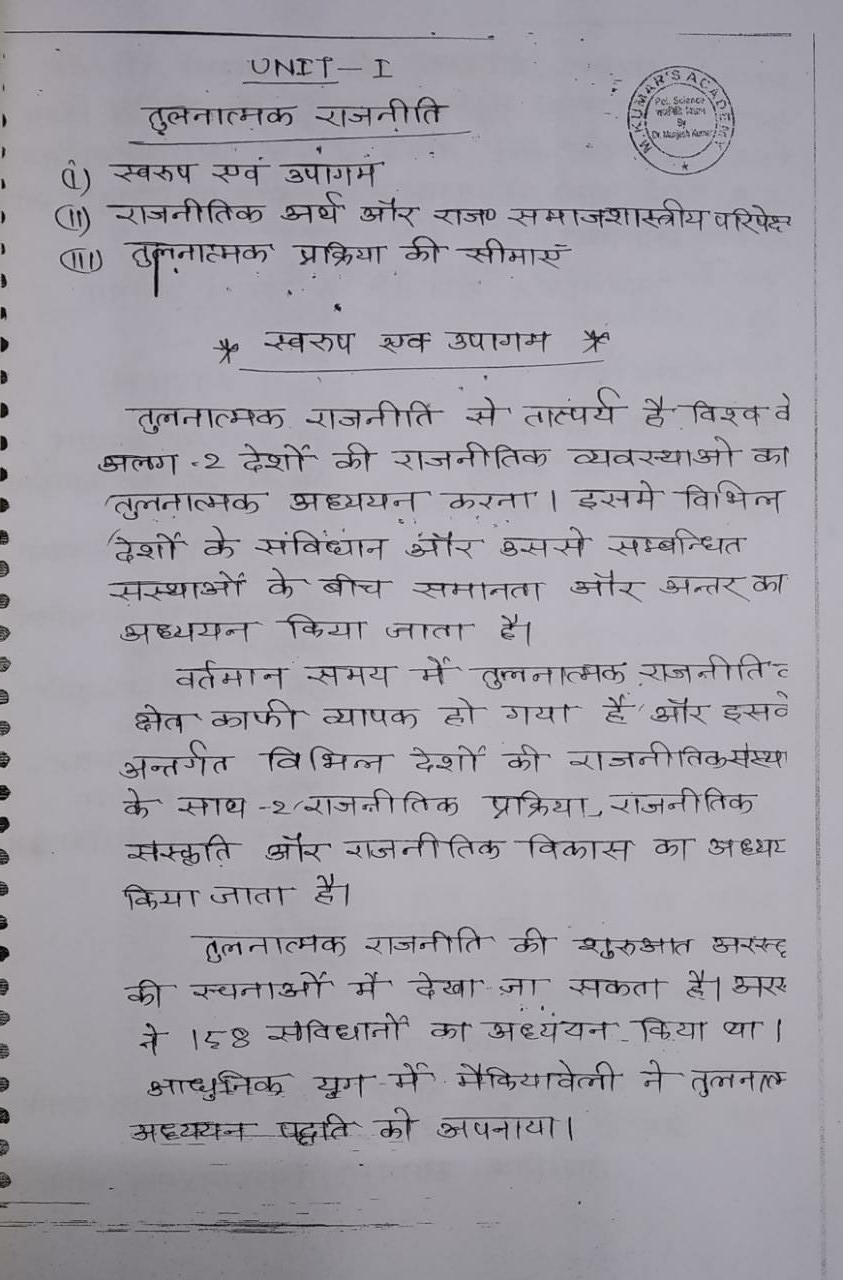 UNIT-I
तुलनात्मक राजनीति
M.KUMAR'S ACADEMY
Pol. Science
By
Dr. Manjesh Kumar
(i) स्वरुप एवं उपागम
(ii) राजनीतिक अर्थ और राज० समाजशास्त्रीय परिपेक्ष
(iii) तुलनात्मक प्रक्रिया की सीमाएँ
* स्वरुप एवं उपागम *
तुलनात्मक राजनीति से तात्पर्य है विश्व के
अलग-2 देशों की राजनीतिक व्यवस्थाओ का
तुलनात्मक अध्ययन करना। इसमे विभिन्न
देशों के संविधान और उससे सम्बन्धित
संस्थाओं के बीच समानता और अन्तर का
अध्ययन किया जाता है।
वर्तमान समय में तुलनात्मक राजनीति
क्षेत्र काफी व्यापक हो गया है और इसके
अन्तर्गत विभिन्न देशों की राजनीतिक संस्था
के साथ-2 राजनीतिक प्रक्रिया, राजनीतिक
संस्कृति और राजनीतिक विकास का अध्यय
किया जाता है।
तुलनात्मक राजनीति की शुरुआत अरस्तू
की रचनाओं में देखा जा सकता है। अरस्
ने 158 संविधानों का अध्ययन किया था।
आधुनिक युग में मैकियावेली ने तुलनात्म
अध्ययन पद्धति को अपनाया।